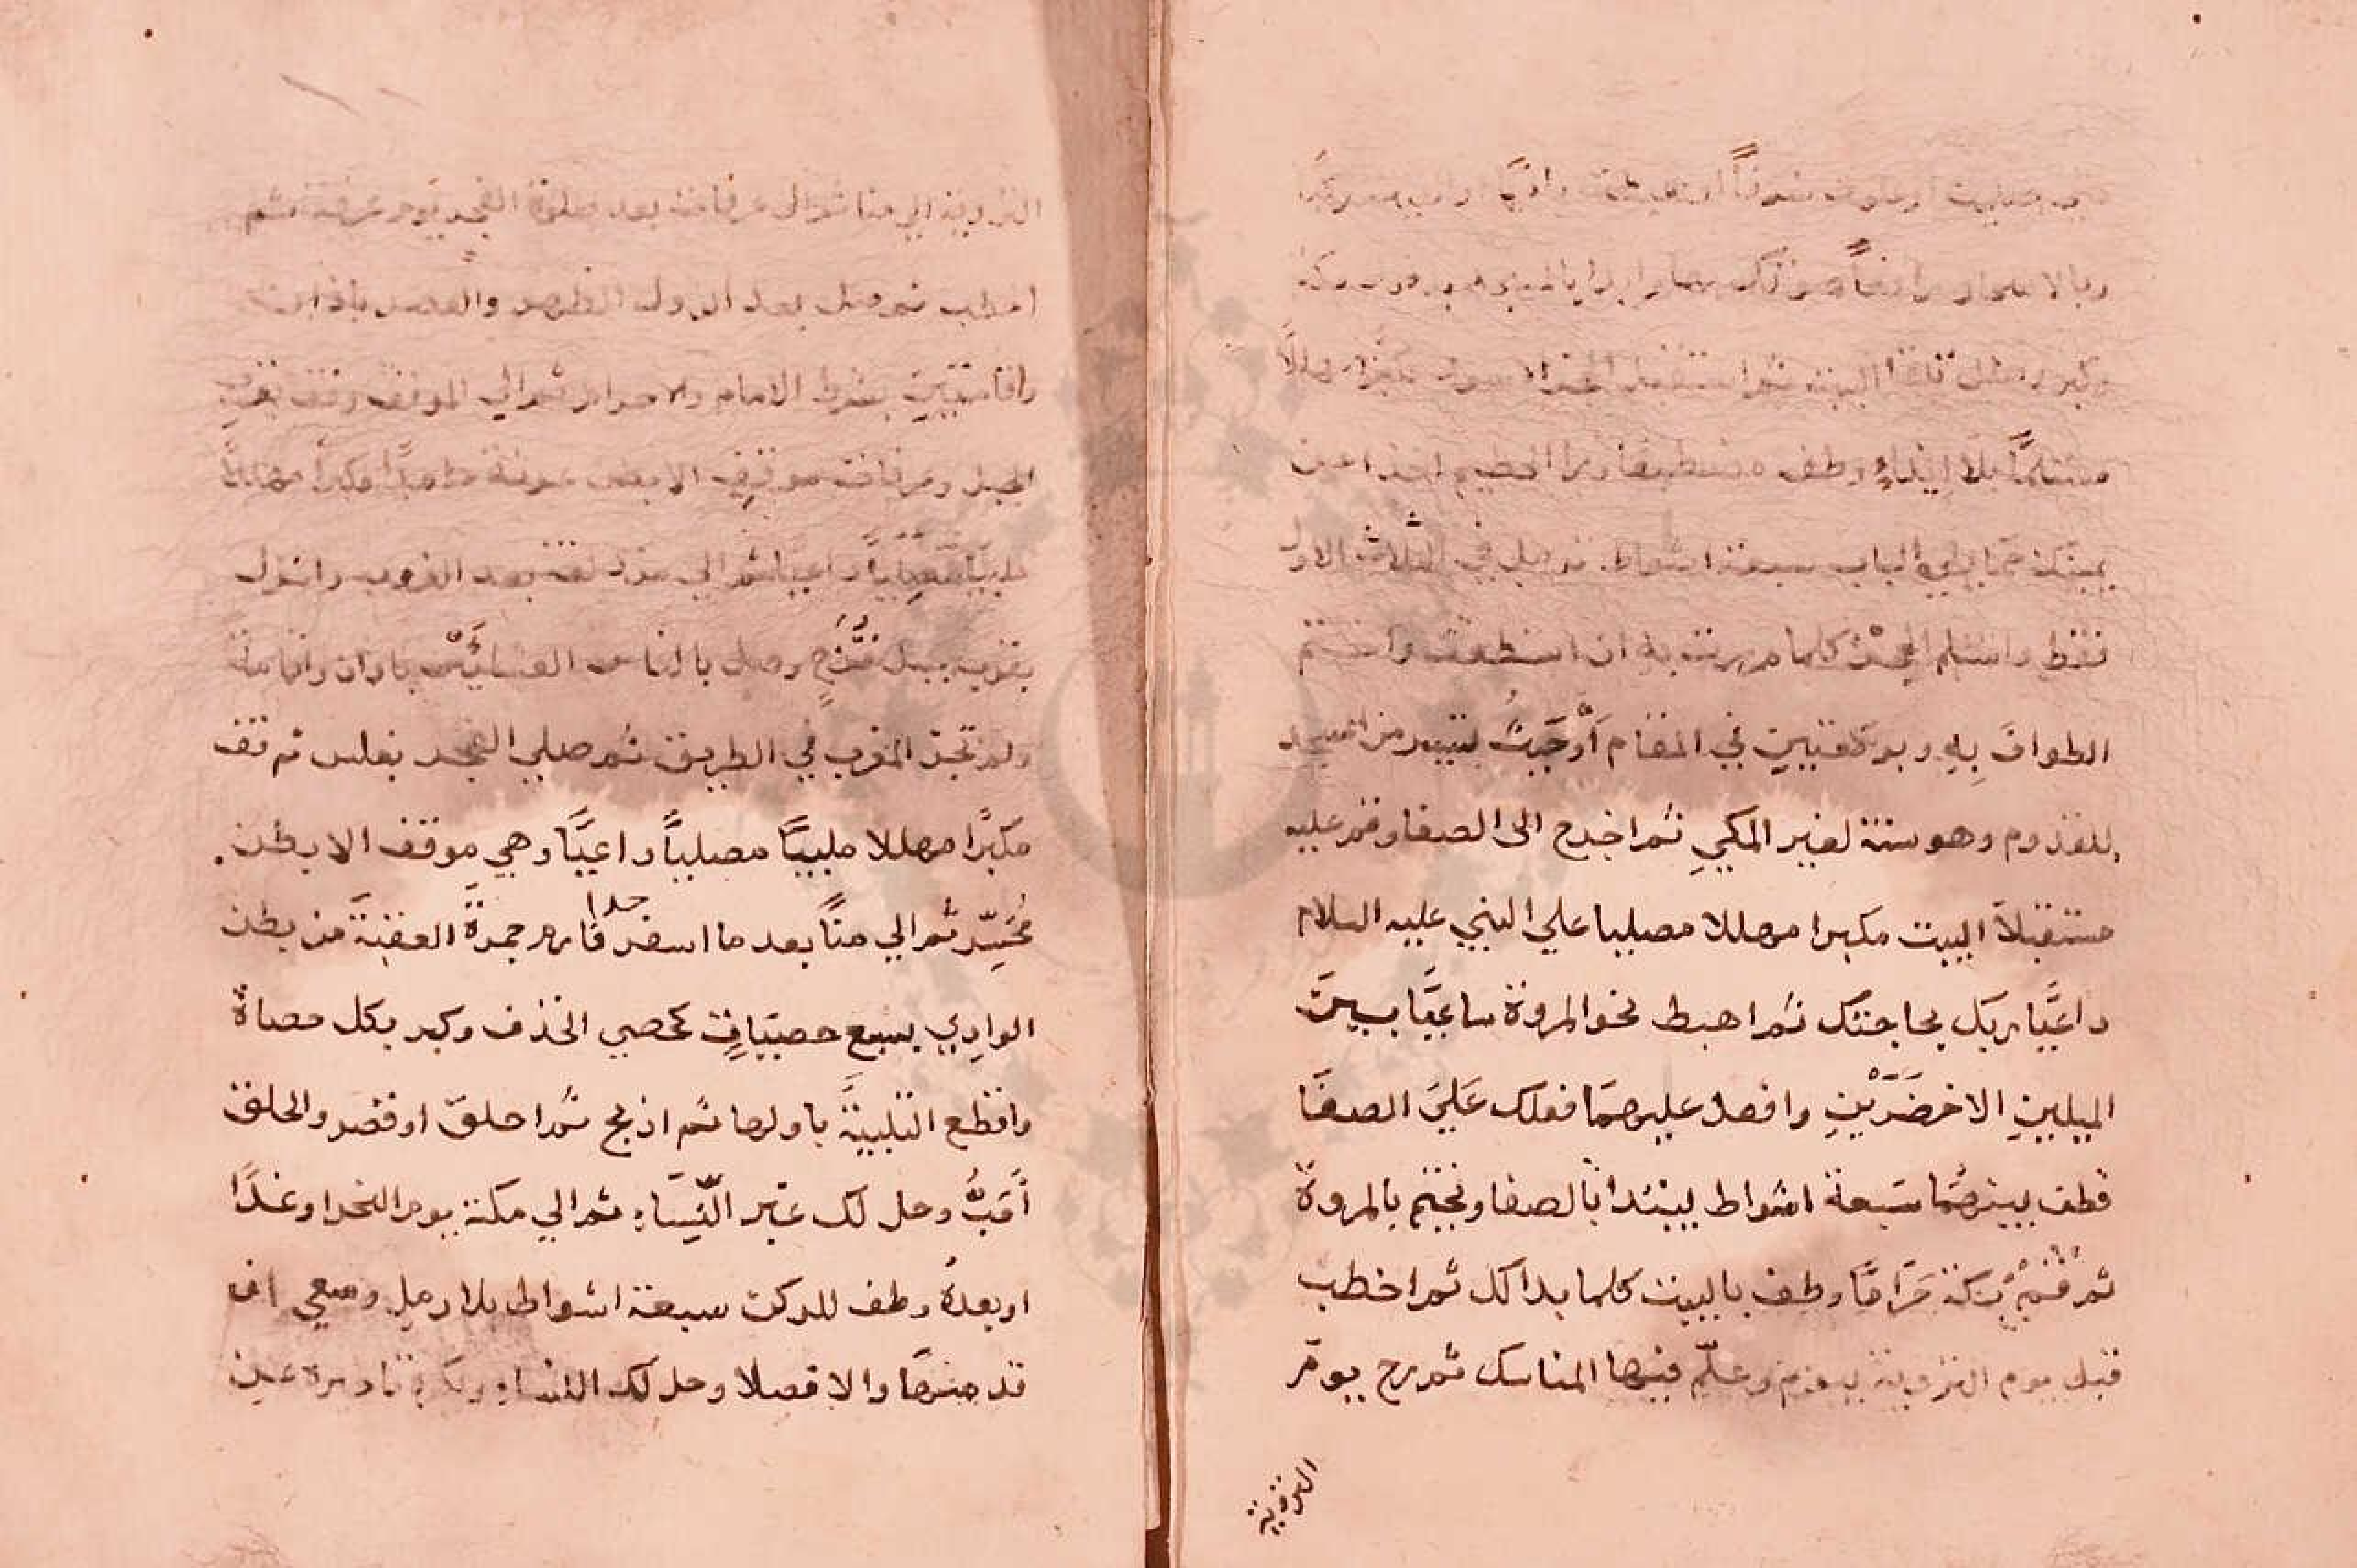 متي صليت او علوت شرفاً او هبطت وادياً او لقيت ركباً
وبالاسحار رافعاً صوتك بها وابدا بالمسجد بدخول مكة
وكبر وهلل تلقا البيت ثم استقبل الحجر الاسود مكبرا مهللاً
مستلماً بلا ايذاءٍ وطف مضطبعا ورا الحطيم اخذا عن
يمينك مما يلي الباب سبعة اشواط ترمل في الثلاثة الاول
فقط واستلم الحجر كلما مررت به ان استطعت واختم
الطواف بِهِ وبركعتين في المقام اَوْحَيْثُ تيسر من المسجد
للقدوم وهو سنة لغير المكيِ ثم اخرج الى الصفا وقم عليه
مستقبلاً البيت مكبرا مهللا مصليا علي النبي عليه السلام
داعيًا ربك بحاجتك ثم اهبط نحو المروة ساعيًا بين
الميلينِ الاخضَرَيْنِ وافعل عليهمَا فعلك عَلَيَ الصفَا
فطف بينهمَا سَبعة اشواط يبتدا بالصفا ويختم بالمروة
ثم قُمْ بمَكة حَرَامًا وطف بالبيت كلما بدا لك ثم اخطب
قبل يوم التروية بيوم وعلّم فيها المناسك ثم رح يومَ
التروية
التروية الي منا ثم الى عرفات بعد صلوة الفجر يوم عرفة ثم
اخطب ثم صل بعد الزول الظهر والعصر باذان
واقامتينِ بشرط الامام والاحرام ثم الي الموقف وقف بقرب
الجبل وعرفات موقف الا بطن عرنة حامدًا مكبرًا مهللاً
ملبيًا مصليًا داعيًا ثم الي مزدلفة بعد الغروب وانزل
بقرب جبل قُزَحٍ وصل بالناس العشائَيْن باذان واقامة
ولم تجز المغرب في الطريق ثم صلي الفجر بغلس ثم قف
مكبرًا مهللا ملبيًا مصلياً داعيًا وهي موقف الا بطن
مُحَسِّر ثم الي مناً بعد ما اسفر جدا فارم جمرةَ العقبَةَ من بطن
الوادِي بسبع حصيَاتٍ كحصي الخذف وكبر بكل حصاة
واقطع التلبيَةَ باولها ثم اذبح ثم احلق او قصر والحلق
أَحَبُّ وحل لك غيْر النِّسَاءِ ثم الي مكة يوم النحر او غدًا
او بعدهُ وطف للركن سبعة اشواط بلا رمل وسعي ان
قدمتهمَا والا فعلا وحل لك النساء وكره تاخيره عن